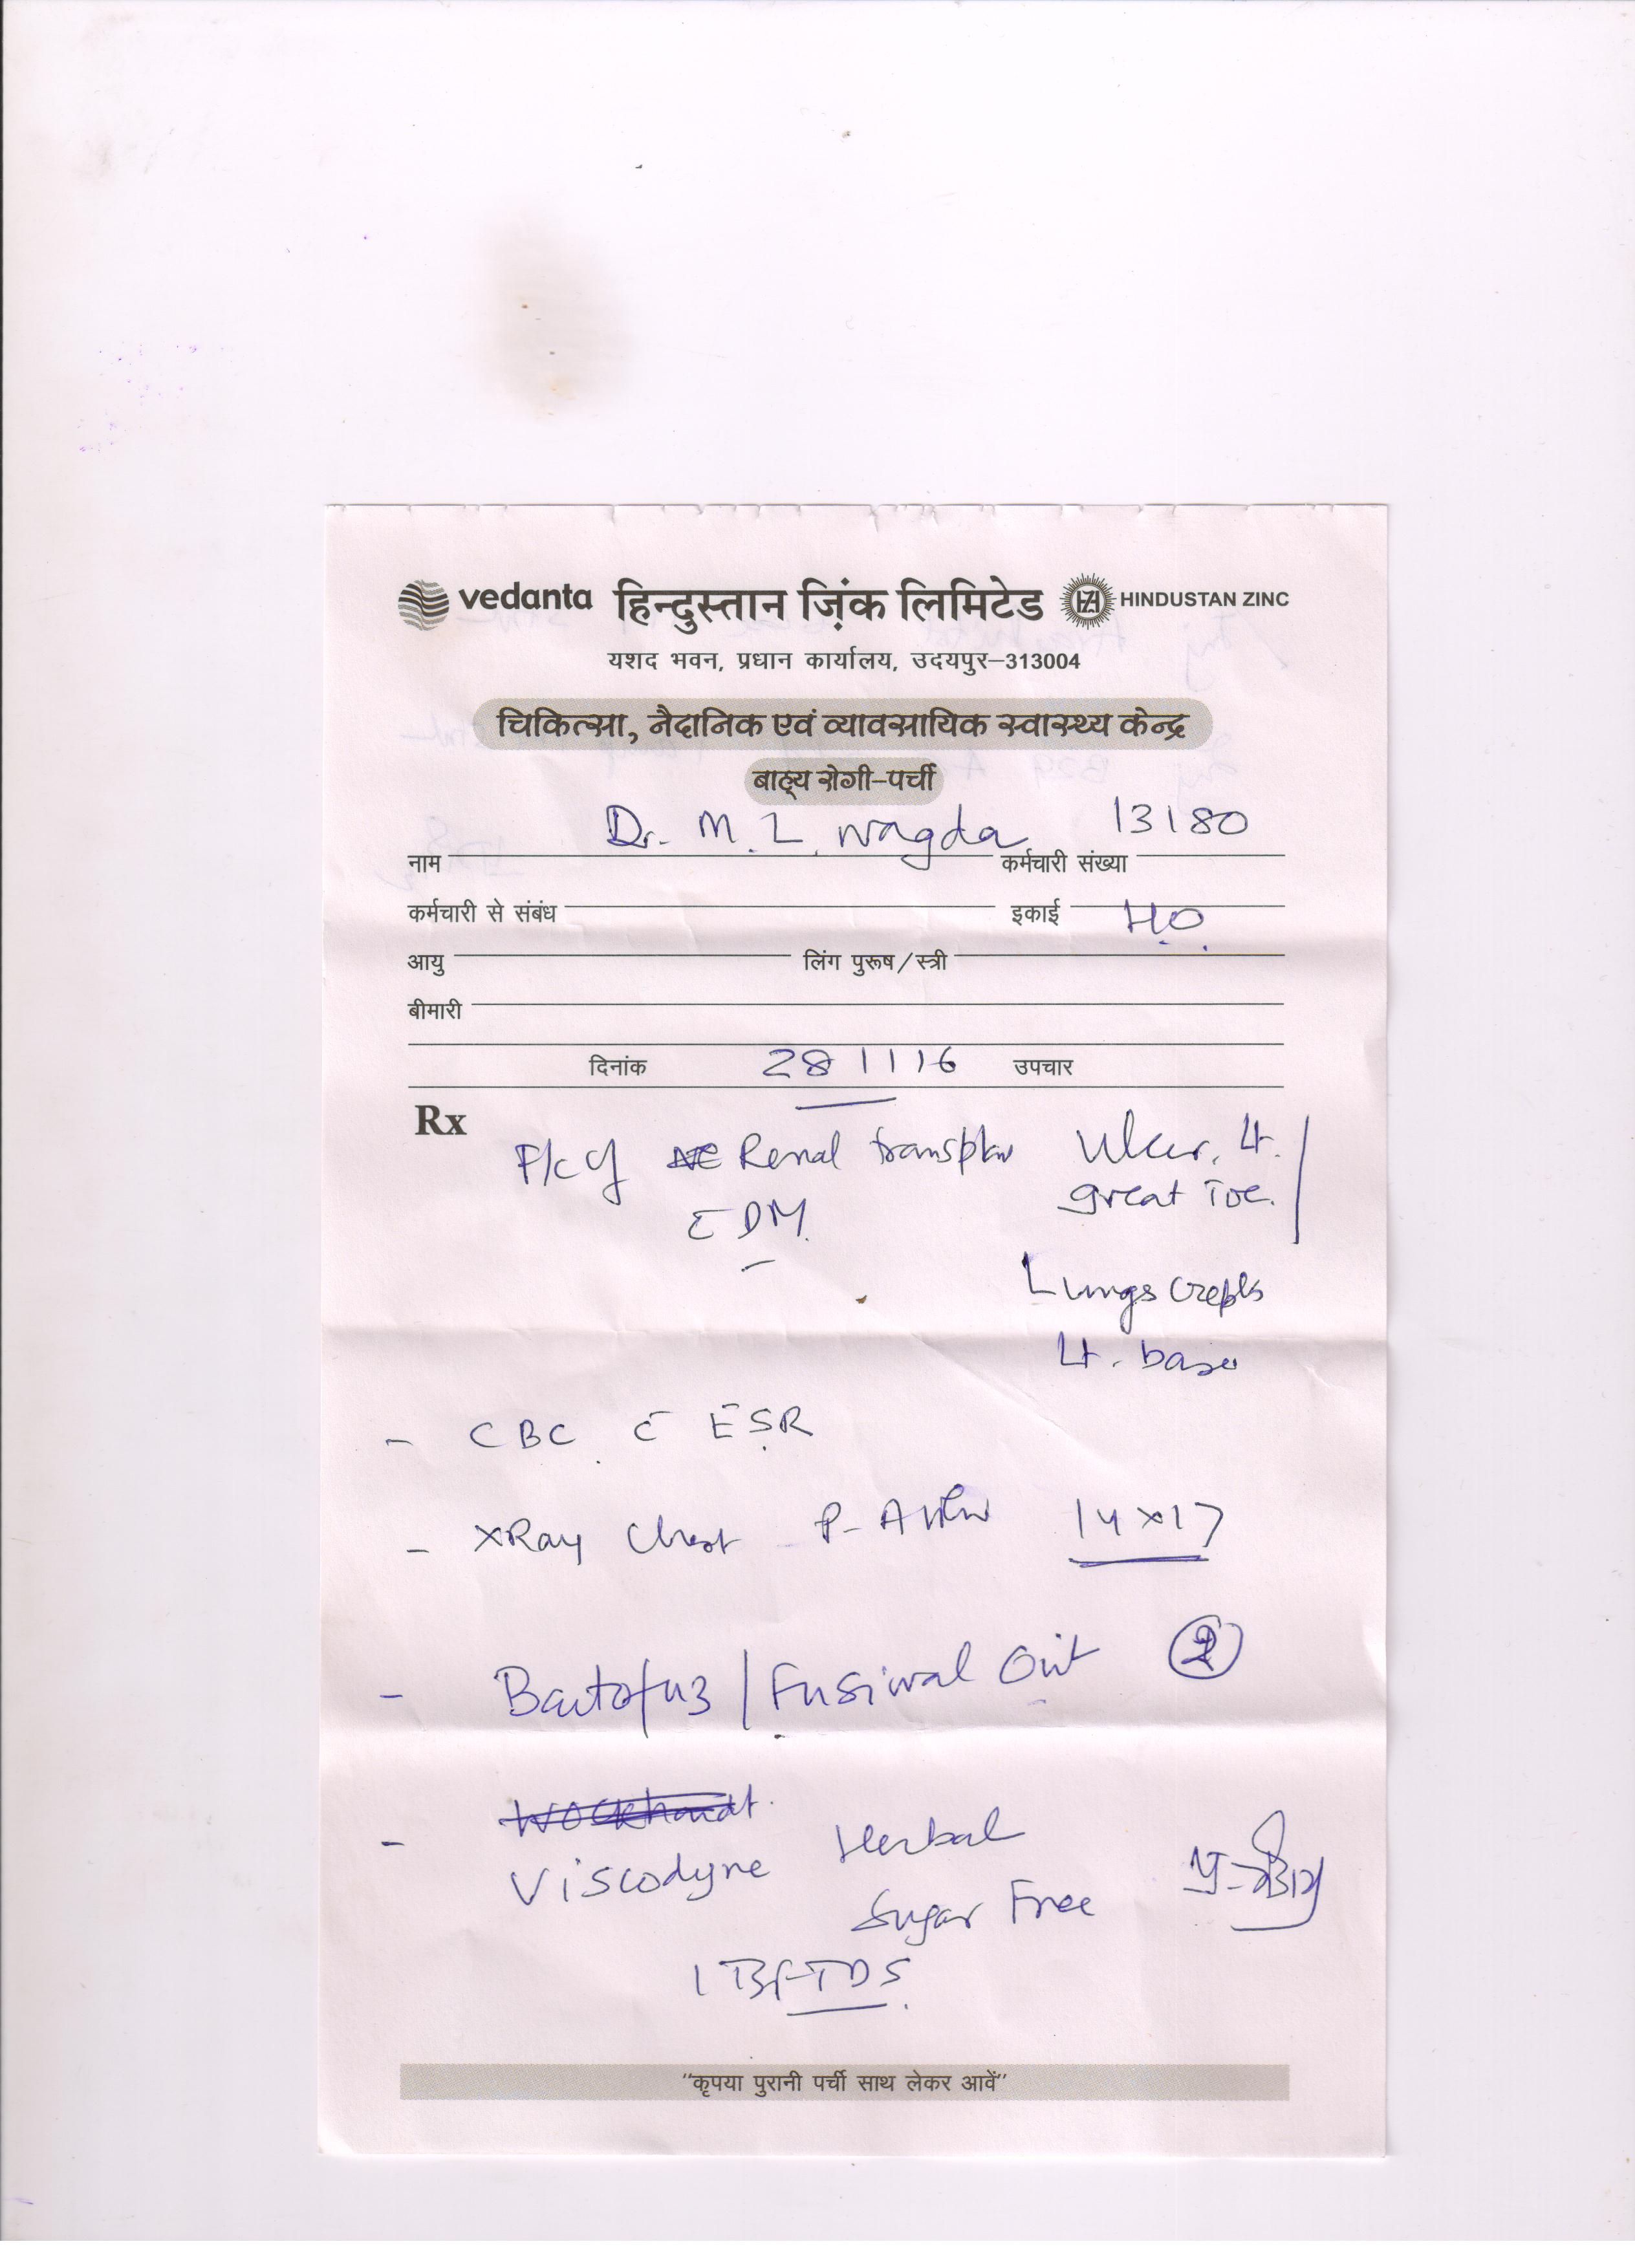 vedanta हिन्दुस्तान ज़िंक लिमिटेड HINDUSTAN ZINC
यशद भवन, प्रधान कार्यालय, उदयपुर–313004
चिकित्सा, नैदानिक एवं व्यावसायिक स्वास्थ्य केन्द्र
बाह्य रोगी-पर्ची
नाम Dr. M. L. Nagda कर्मचारी संख्या 13180
कर्मचारी से संबंध इकाई H.O.
आयु लिंग पुरूष/स्त्री
बीमारी
दिनांक 281116 उपचार
Rx
F/c of Renal transplant Ulcer. Lt.
c̄ DM. great Toe.
Lungs crepts
Lt. base
- CBC c̄ ESR
- XRay Chest P-A view 14x17
- Bactofuz / Fusiwal Oint 2
- Wockhardt.
Viscodyne Herbal
Sugar Free
1 TSF TDS.
"कृपया पुरानी पर्ची साथ लेकर आवें"